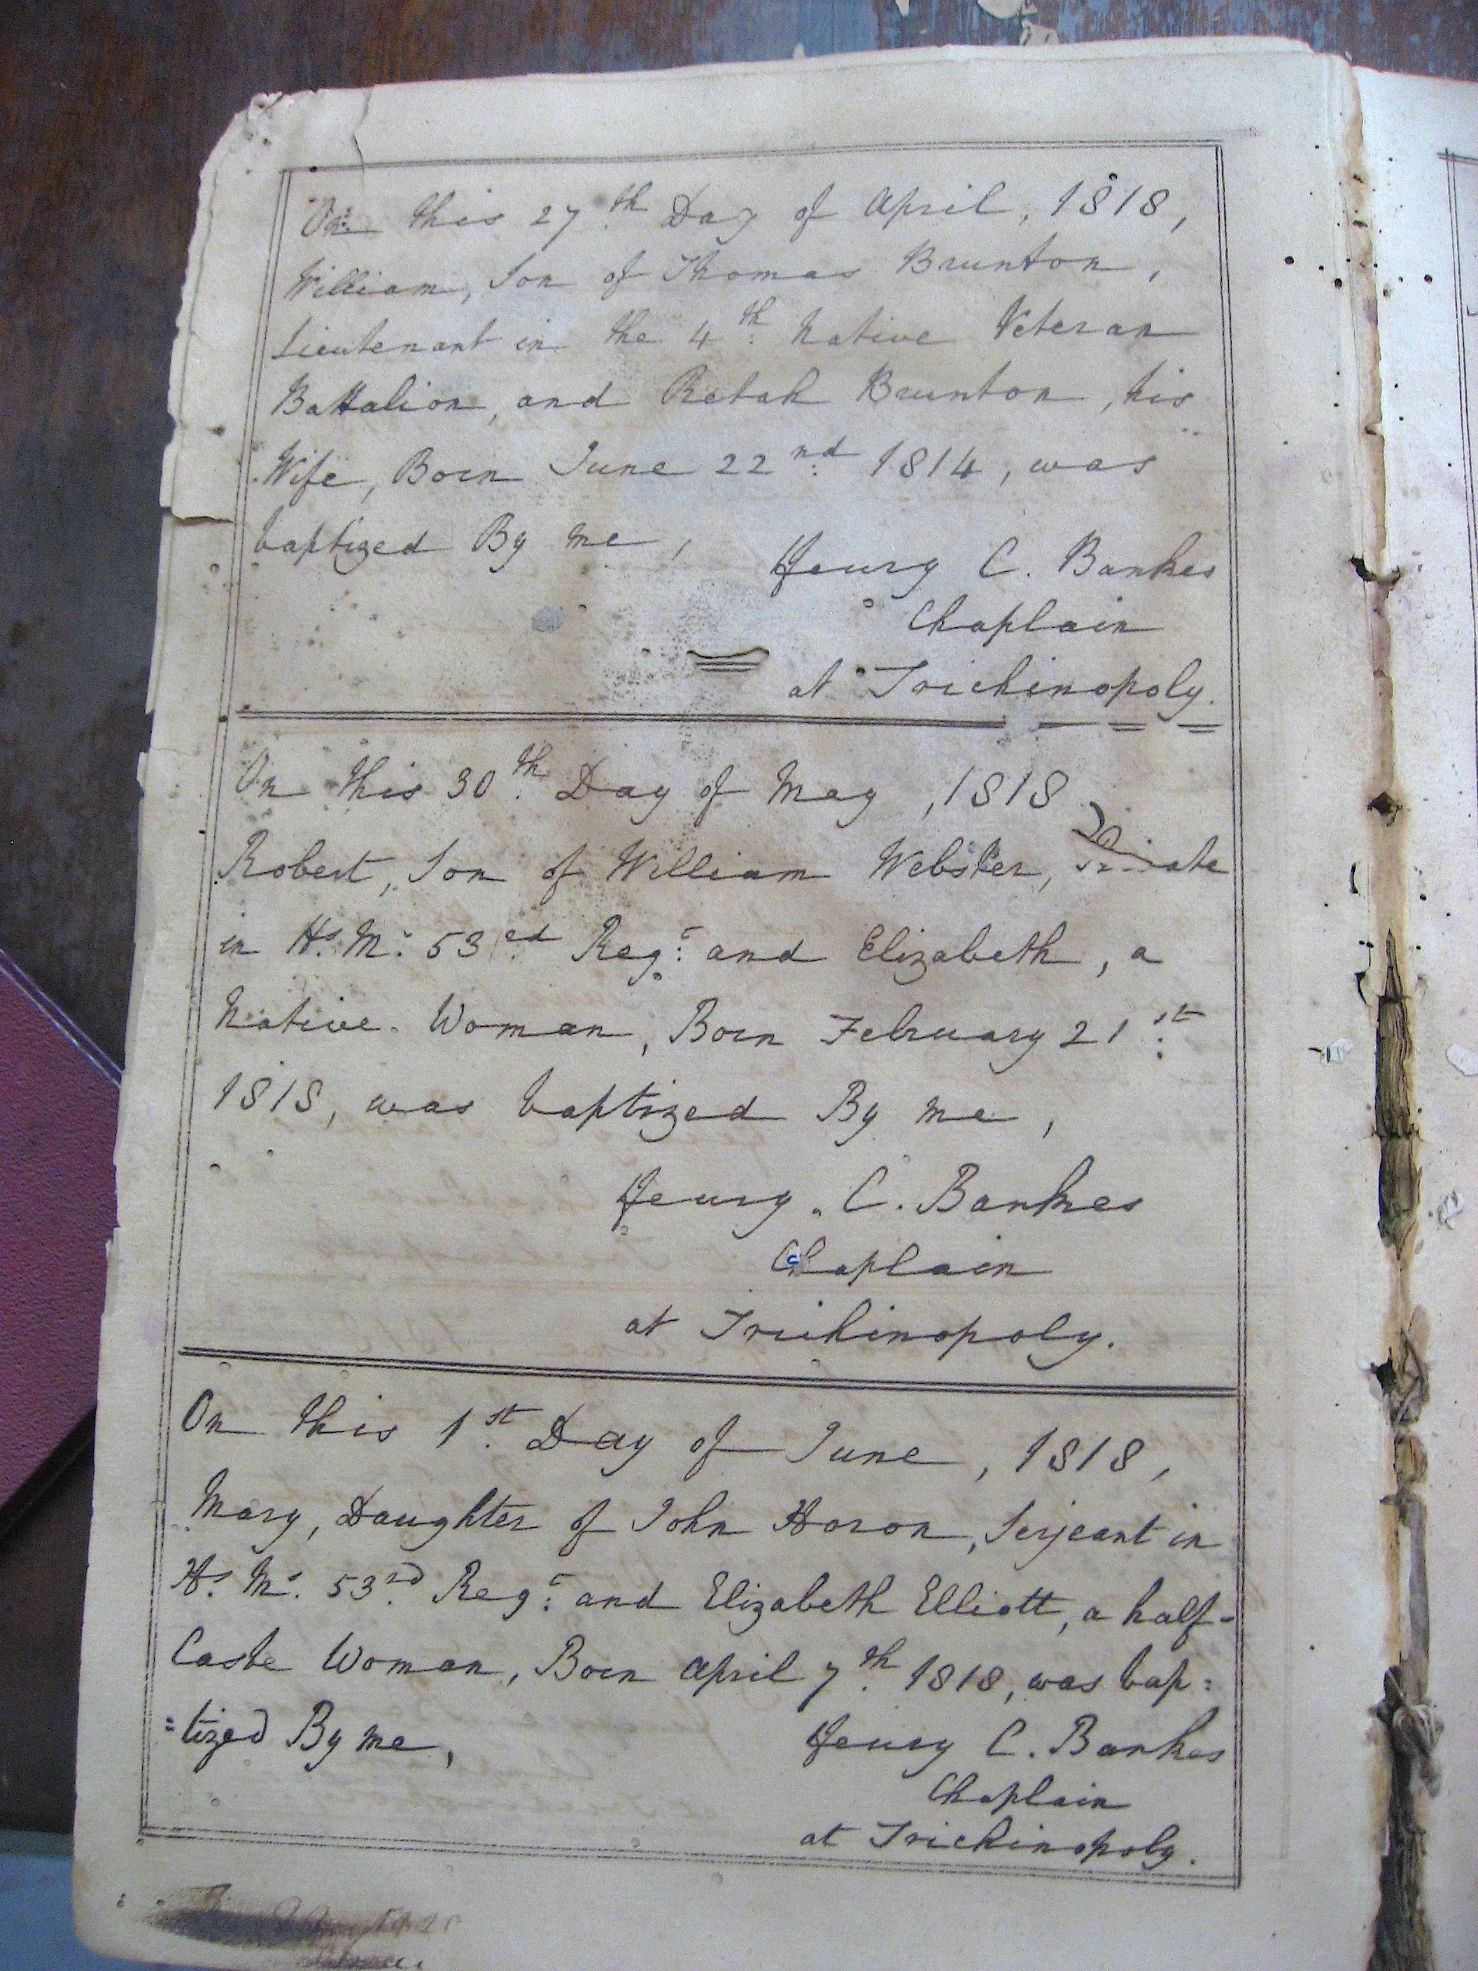 On this 27th Day of April, 1818,
William, Son of Thomas Brunton,
Lieutenant in the 4th Native Veteran
Battalion, and Retah Brunton, his
Wife, Born June 22nd 1814, was
baptized By me,
Henry C. Bankes
Chaplain
at Trichinopoly.
On this 30th Day of May, 1818
Robert, Son of William Webster, Private
in Hs. Ms. 53ed Regt: and Elizabeth, a
Native Woman, Born February 21st
1818, was baptized By me,
Henry. C. Bankes
Chaplain
at Trichinopoly.
On this 1st Day of June, 1818,
Mary, Daughter of John Horon, Serjeant in
Hs. Ms. 53rd Regt: and Elizabeth Elliott, a half-
Caste Woman, Born April 7th 1818, was bap=
=tized By me,
Henry C. Bankes
Chaplain
at Trichinopoly.